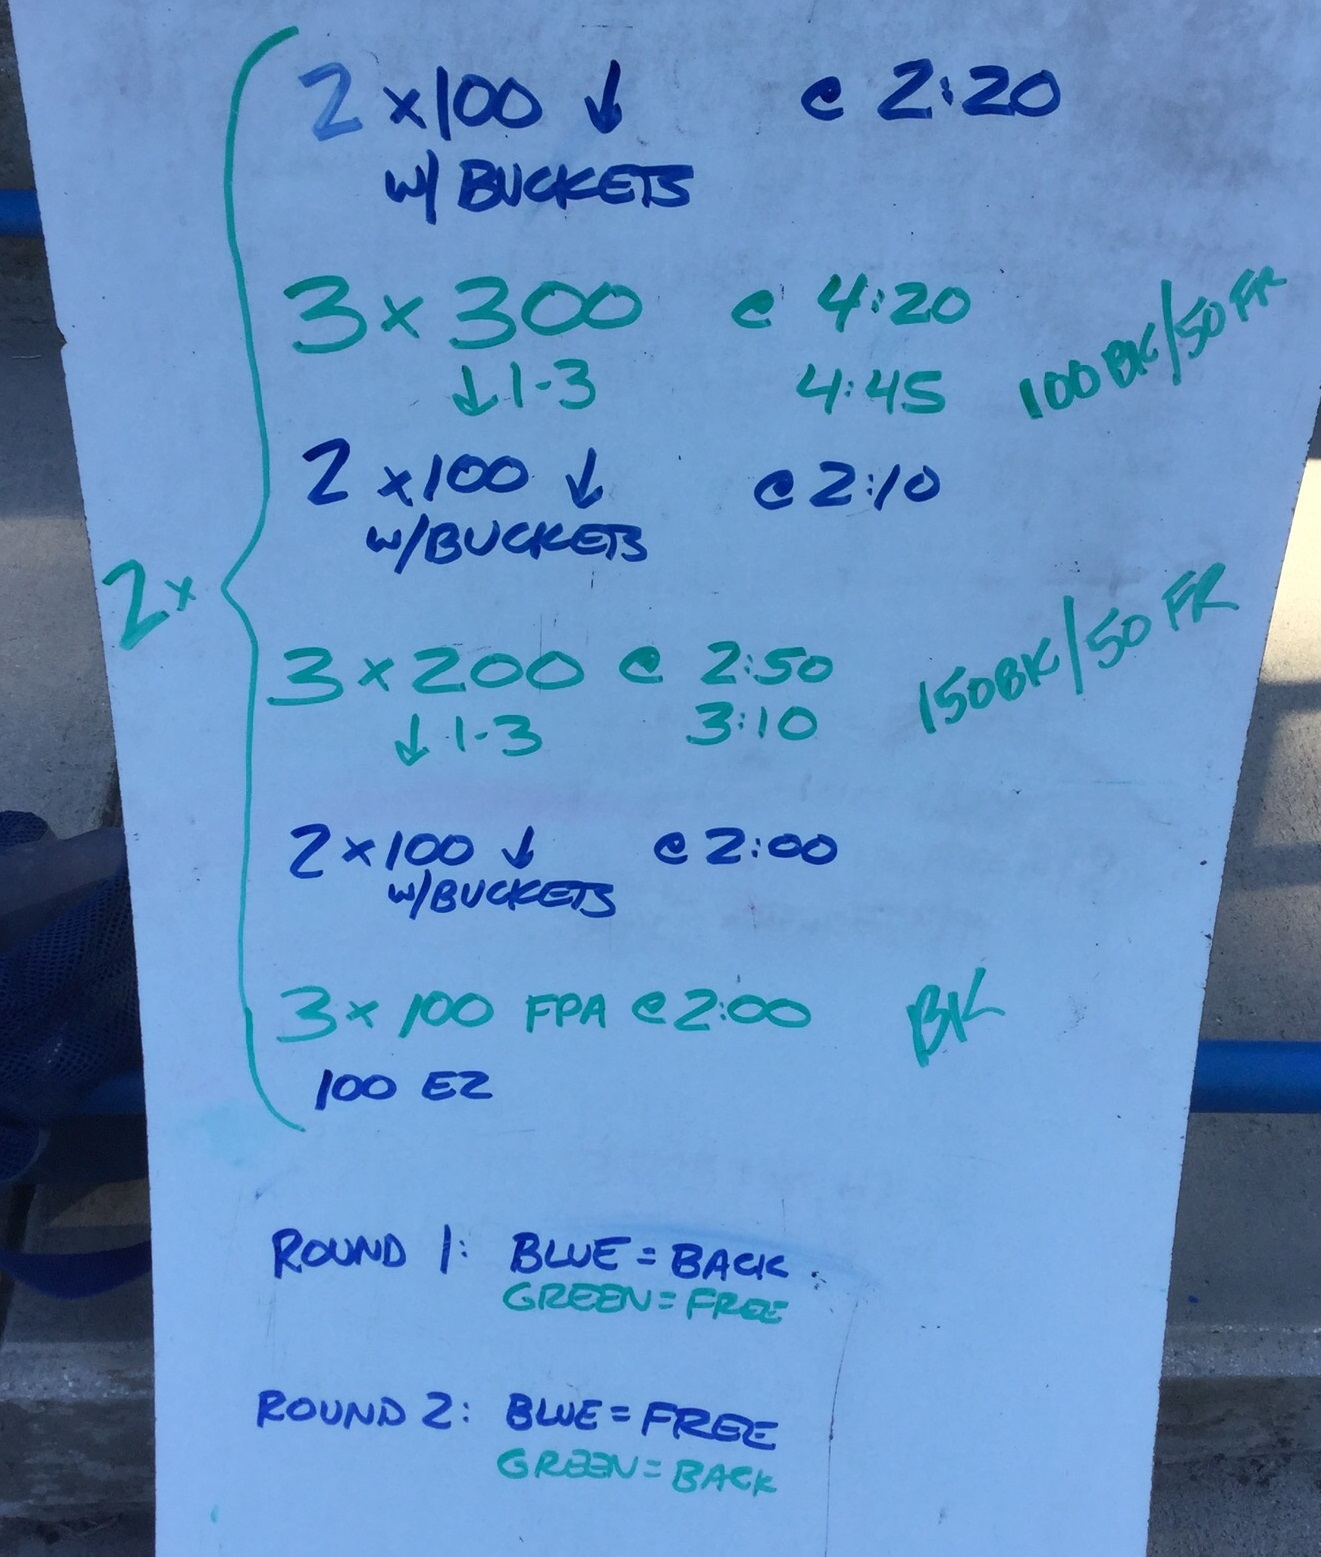 2 x 100 ↓ @ 2:20
w/ BUCKETS
3 x 300 @ 4:20
↓ 1-3 4:45 100 BK/50 FR
2 x 100 ↓ @ 2:10
w/ BUCKETS
2x
3 x 200 @ 2:50
↓ 1-3 3:10 150 BK/50 FR
2 x 100 ↓ @ 2:00
w/ BUCKETS
3 x 100 FPA @ 2:00 BK
100 EZ
ROUND 1: BLUE = BACK
GREEN = FREE
ROUND 2: BLUE = FREE
GREEN = BACK